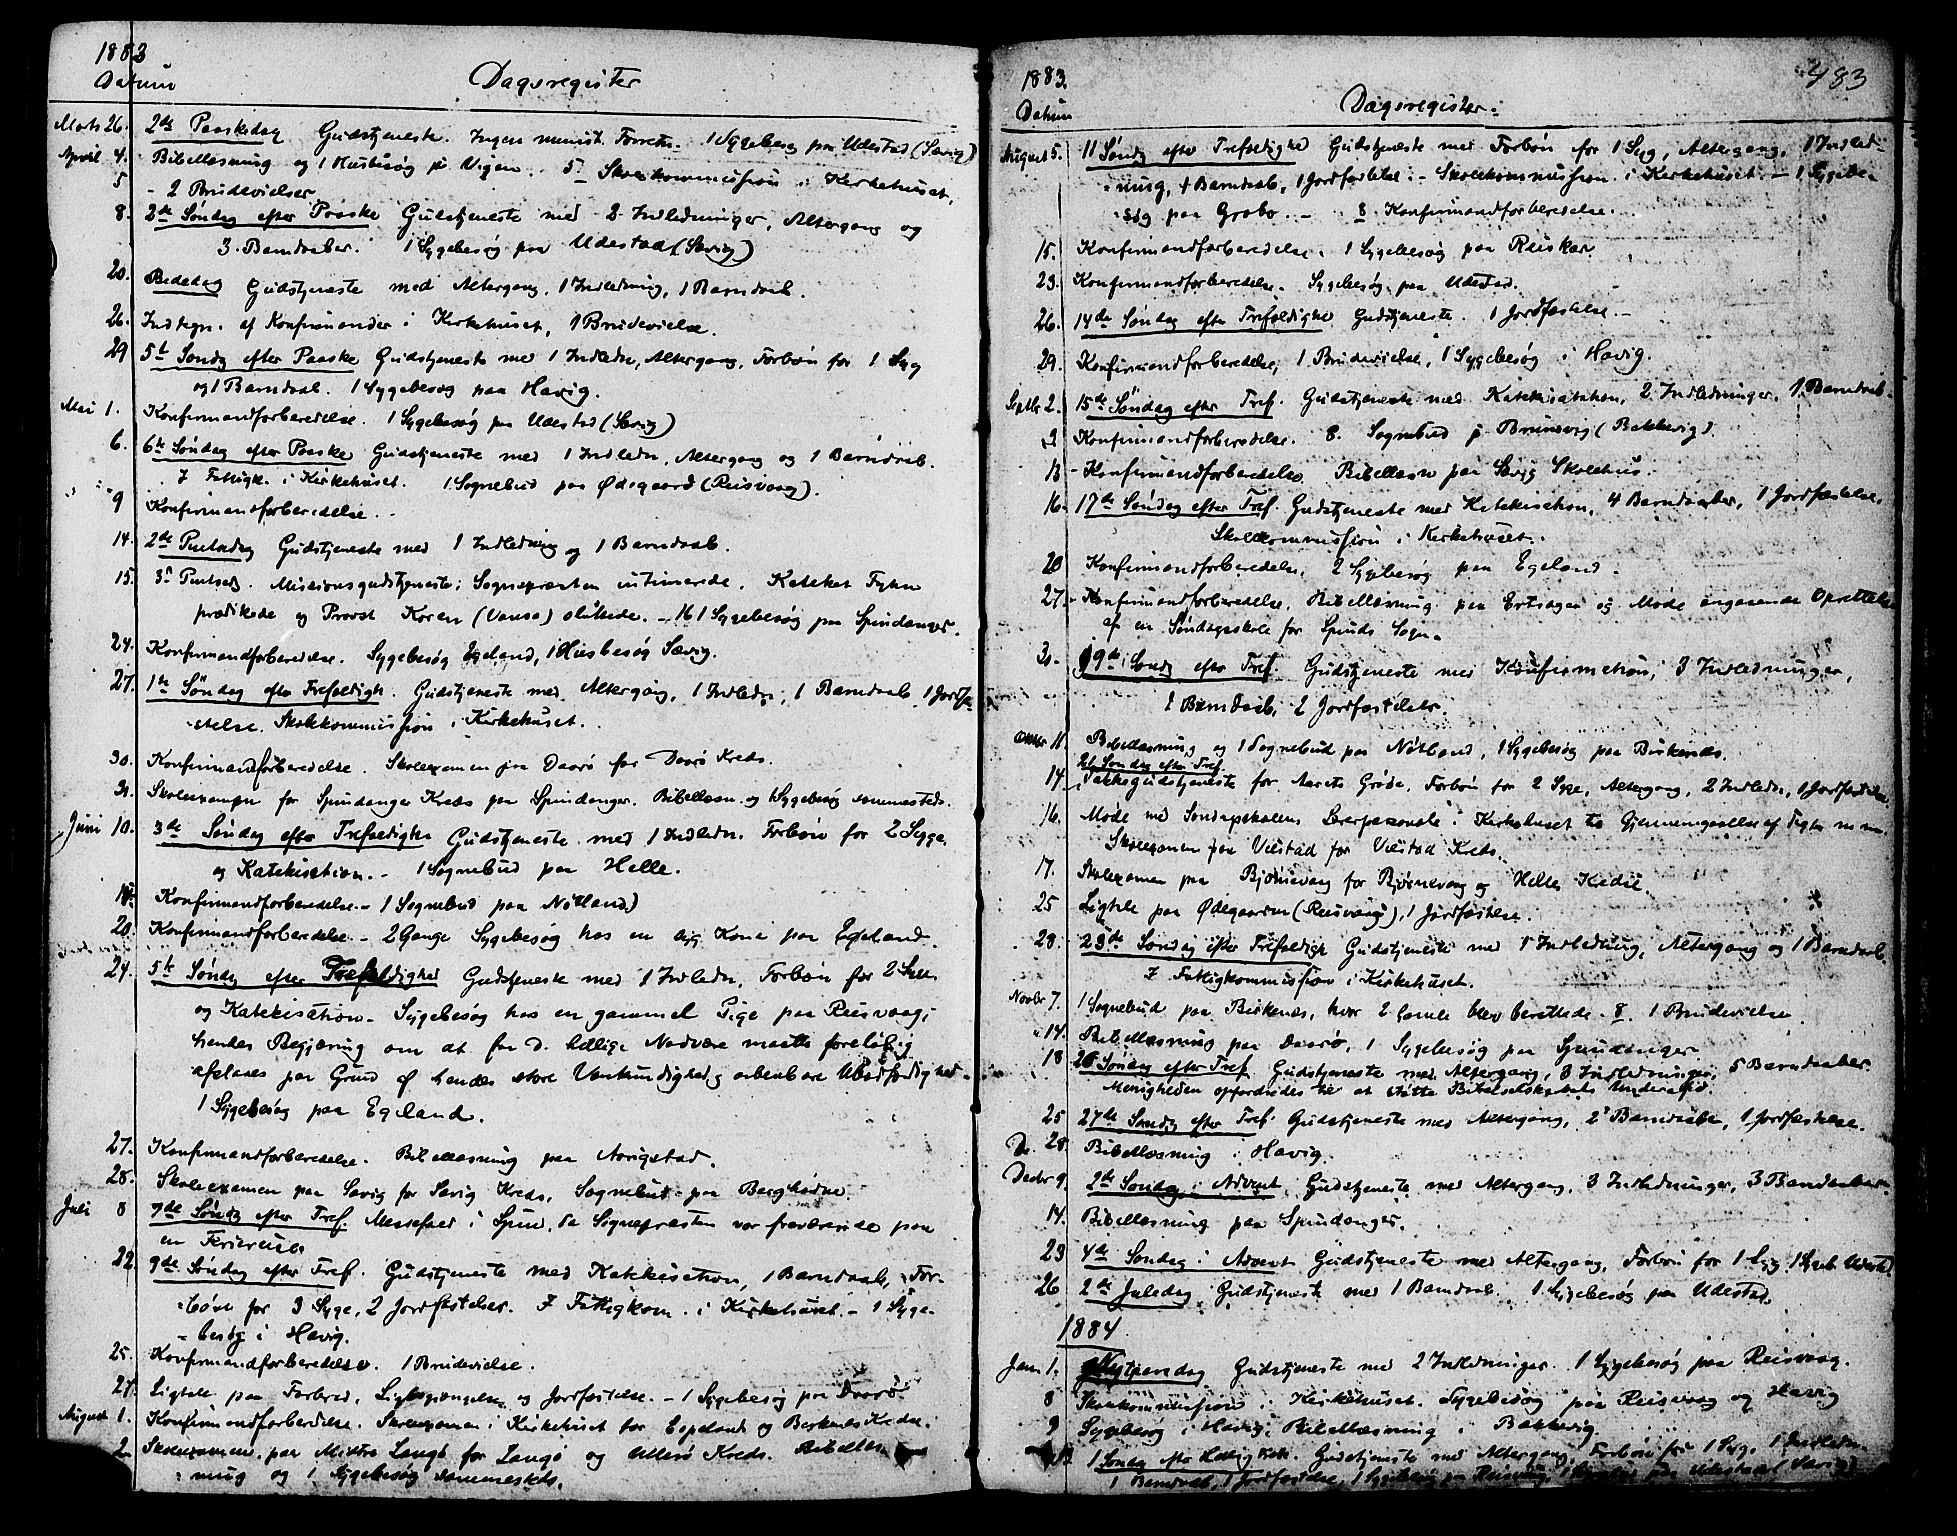 1883
Datum
Dagsregister
Marts 26. 2de Paaskedag Gudstjeneste. Ingen minist. Forretn. 1 Sygebesøg paa Udestad (Sævig)
April 4. Bibellæsning og 1 Husbesøg på Vigen. 5. Skolekommission i Kirkehuset,
5 - 2 Brudevielser
8. 2de Søndag efter Paaske Gudstjeneste med 2 Indledninger, Altergang og
3 Barndaaber. 1 Sygebesøg paa Udestad (Sævig)
20. Bededag Gudstjeneste med Altergang, 1 Indledning, 1 Barndaab.
26. Indtegn. af Konfirmander i Kirkehuset, 1 Brudevielse.
29 5te Søndg efter Paaske Gudstjeneste med 1 Indledn, Altergang, Forbøn for 1 Syg
og 1 Barndaab. 1 Sygebesøg paa Havig.
Mai 1. Konfirmandforberedelse. 1 Sygebesøg paa Udestad (Sævig)
6. 6te Søndag efter Paaske Gudstjeneste med 1 Indledn, Altergang og 1 Barndaab.
7 Fattigk. i Kirkehuset. 1 Sognebud paa Ødegaard (Reisvaag).
9 Konfirmandforberedelse. -
14. 2de Pintsedag Gudstjeneste med 1 Indledning og 1 Barndaab.
15. 3. Pintsed. Missionsgudstjeneste; Sognepræsten intimerede. Kateket
prædikede og Provst Koren (Vanse) sluttede. - 16 1 Sygebesøg paa Spindanger.
24. Konfirmandforberedelse. Sygebesøg Egeland, 1 Husbesøg Sævig.
27. 1te Søndag efter Trefoldigh. Gudstjeneste med Altergang, 1 Indledn, 1 Barndaab, 1 Jordfæ-
stelse. Skolekommission i Kirkehuset.
30. Konfirmandforberedelse. Skoleexamen paa Daarø for Daarø Kreds.
31. Skoleexamen for Spindanger Kreds paa Spindanger. Bibellæsn. og Sygebesøg sammesteds.
Juni 10. 3de Søndag efter Trefoldighe Gudstjeneste med 1 Indledn. Forbøn for 2 Syge
og Katekisation. - 1 Sognebud paa Helle.
Konfirmandforberedelse - 1 Sognebud paa Nøtland
20. Konfirmandforberedelse - 2 Gange Sygebesøg hos en syg Kone paa Egeland.
24. 5te Søndag efter Trefoldighed Gudstjeneste med 1 Indledn, Forbøn for 2 Syge
og Katekisation - Sygebesøg hos en gammel Pige paa Reisvaag;
hendes Begjæring om at faa d. hellige Nadvere maatte foreløbig
afslaaes paa Grund af hendes store Vankundighed og aabenbare Ubodfærdighed -
1 Sygebesøg paa Egeland.
27. Konfirmandforberedelse. Bibellæsning paa
28. Skoleexamen paa Sævig for Sævig Kreds, Sognebud paa
Juli 8 7de Søndg efter Tref. Messefald i Spind, da Sognepræsten var fraværende paa
en Feriereise
22. 9de Søndag efter Tref. Gudstjeneste med Katekisation, 1 Barndaab, For-
bøn for 3 Syge, 2 Jordfæstelser. 7 Fattigkom. i Kirkehuset - 1 Syge-
besøg i Havig.
25. Konfirmandforberedelse. 1 Brudevielse.
27. Ligtale paa Ligbegjængelse og Jordfæstelse. - 1 Sygebesøg paa Daarø
August 1. Konfirmandforberedelse. Skoleexamen i Kirkehuset for Egeland og Birkenes Kredse.
2. Skoleexamen paa Langø for Langø og Ullerø Kreds. Bibellæs-
ning og 1 Sygebesøg sammesteds.
483
1883.
Datum
Dagsregister.
August 5. 11 Søndg efter Trefoldighed Gudstjeneste med Forbøn for 1 Syg, Altergang, 1 Indled-
ning, 4 Barndaab, 1 Jordfæstelse. - Skolekommission i Kirkehuset. - 1 Sygebe-
søg paa Grobo. - 8. Konfirmandforberedelse.
15. Konfirmandforberedelse. 1 Sygebesøg paa
23. Konfirmandforberedelse. Sygebesøg paa Udestad.
26. 14de Søndag efter Trefoldighe Gudstjeneste. 1 Jordfæstelse. -
29. Konfirmandforberedelse, 1 Brudevielse, 1 Sygebesøg i Havig.
Septbr 2. 15de Søndag efter Tref. Gudstjeneste med Katekisation, 2 Indledninger, 1 Barndaab.
Konfirmandforberedelse. 8. Sognebud på (Bakkevig).
13 - Konfirmandforberedelse Bibellæsn paa Sævig Skolehus.
16. 17de Søndag efter Tref. Gudstjeneste med Katekisation, 4 Barndaaber, 1 Jordfæstelse,
Skolekommission i Kirkehuset.
20 Konfirmandforberedelse, 2 Sygebesøg paa Egeland.
27. - Konfirmandforberedelse. Bibellæsning paa og Møde angaaende Oprettelse
af en Søndagsskole for Spinds Sogn.
30. 19de Søndg efter Tref Gudstjeneste med Konfirmation, 3 Indledninger,
2 Barndaab, 2 Jordfæstelser.
Oktbr 11. Bibellæsning og 1 Sognebud paa Nøtland, 1 Sygebesøg paa Birkenæs.
21 Søndag efter Tref.
14. Takkegudstjeneste for Aarets Grøde. Forbøn for 2 Syge, Altergang, 2 Indledn, 1 Jordfæstelse
16. Møde med Søndagskolens Lærerpersonale i Kirkehuset til Gjennemgaaelse af m m
Skoleexamen paa Udestad for Udestad Kreds.
17. Skoleexamen paa Bjørnevaag for Bjørnevaag og Helle Kredse.
25 Ligtale paa Ødegaarden (Reisvaag), 1 Jordfæstelse.
28. 23de Søndag efter Trefoldigh Gudstjeneste med 1 Indledning, Altergang og 1 Barndaab
7 Fattigkommission i Kirkehuset.
Novbr 7. 1 Sognebud paa Birkenæs, hvor 2 Gamle blev berettede. 8. 1 Brudevielse.
14. Bibellæsning paa Daarø, 1 Sygebesøg paa Spindanger
18 26 Søndag efter Tref Gudstjeneste med Altergang, 3 Indledninger, 5 Barndaaber.
Menigheden opfordredes til at støtte Bibelselskabets
25 27de Søndg efter Tref Gudstjeneste med Altergang, 2 Barndaabe, 1 Jordfæstelse.
28. Bibellæsning i Havig.
Decbr 9. 2de Søndag i Advent, Gudstjeneste med Altergang, 3 Indledninger, 3 Barndaaber.
14. Bibellæsning paa Spindanger.
23 4de Søndag i Advent Gudstjeneste med Altergang, Forbøn for 1 Syg, 1 Sygeb Udestd
26 2de Juledag Gudstjeneste med 1 Barndaab. 1 Sygebesøg paa Udestad.
1884
Jan 1. Nytaarsdag Gudstjeneste med 2 Indledninger. 1 Sygebesøg paa Reisvaag.
8 Skolekommission i Kirkehuset. Sygebesøg paa Reisvaag og Havig
9 Sygebesøg i Havig, Bibellæsning i Bakkevig.
1 Søndag efter Hellig 3 K. Gudstjeneste med Altergang, Forbøn for 1 Syg, 1 Indledn.
1 Barndaab, 1 Jordfæstelse, 1 Sygebesøg paa Reisvaag, paa Udestad (Sævig)